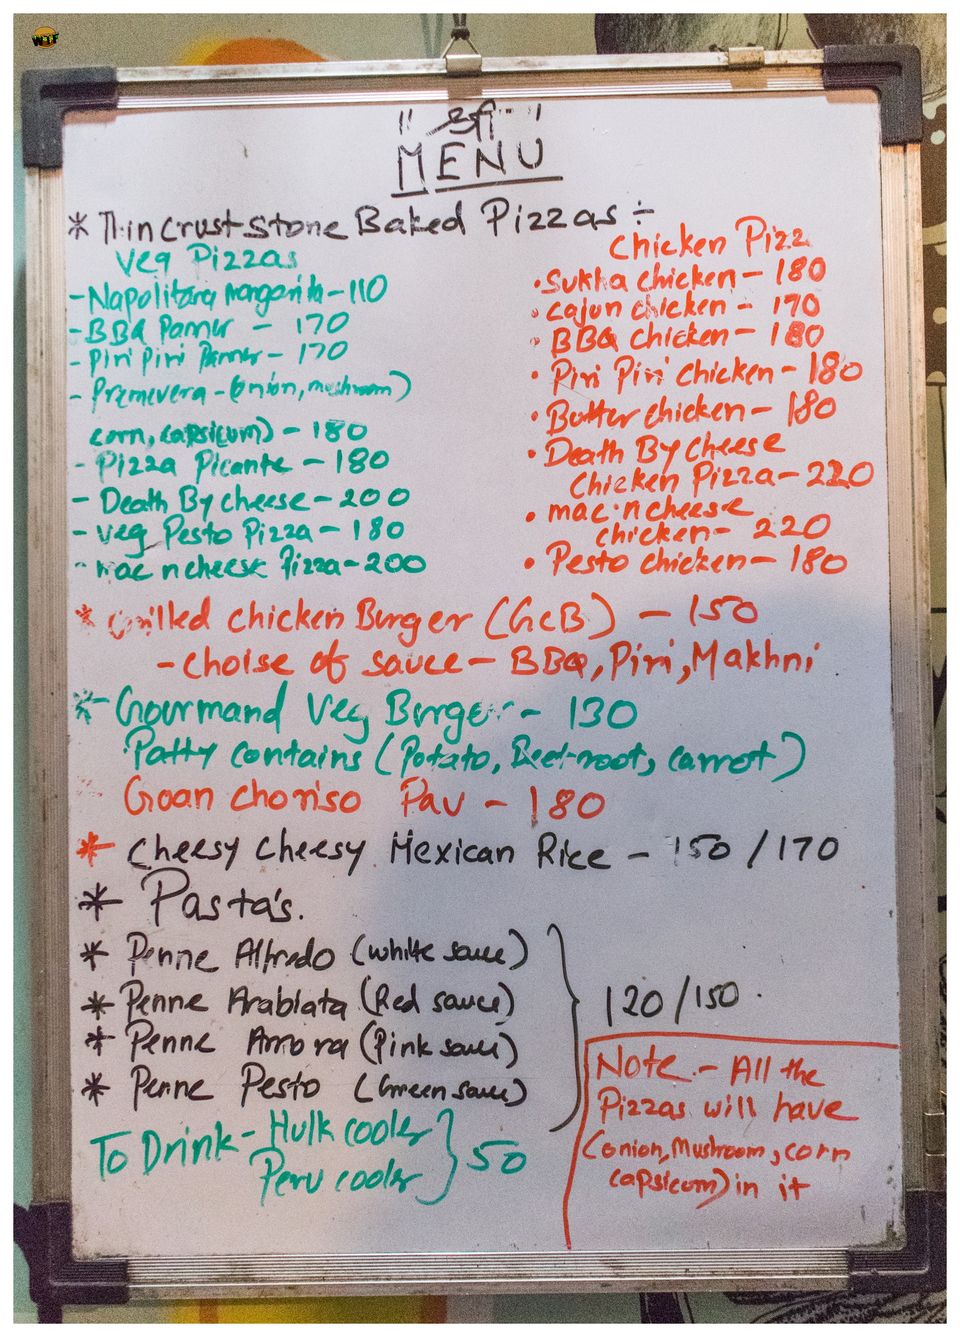 WTF
MENU
* Thin Crust Stone Baked Pizzas ÷
Veg Pizzas
- Napolitana margarita - 110
- BBQ Panner - 170
- Piri Piri Panner - 170
- Premevera - (onion, mushroom)
corn, capsicum) - 180
- Pizza Picante - 180
- Death By cheese - 200
- Veg Pesto Pizza - 180
- mac n cheese Pizza - 200
Chicken Pizz
• Sukha chicken - 180
• cajun chicken - 170
• BBQ chicken - 180
• Piri Piri chicken - 180
• Butter chicken - 180
• Death By Cheese
Chicken Pizza - 220
• mac 'n cheese
chicken - 220
• Pesto chicken - 180
* Grilled chicken Burger (GCB) - 150
- choise of sauce - BBQ, Piri, Makhni
* Gourmand Veg Burger - 130
Patty contains (Potato, Beet-root, carrot)
Goan choriso Pav - 180
* Cheesy Cheesy Mexican Rice - 150 / 170
* Pasta's.
* Penne Alfredo (white sauce)
* Penne Arabiata (Red sauce)
* Penne Amora (Pink sauce)
* Penne Pesto (Green sauce)
120 / 150
To Drink - Hulk cooler
Peru cooler
50
Note - All the
Pizzas will have
(onion, Mushroom, corn
capsicum) in it